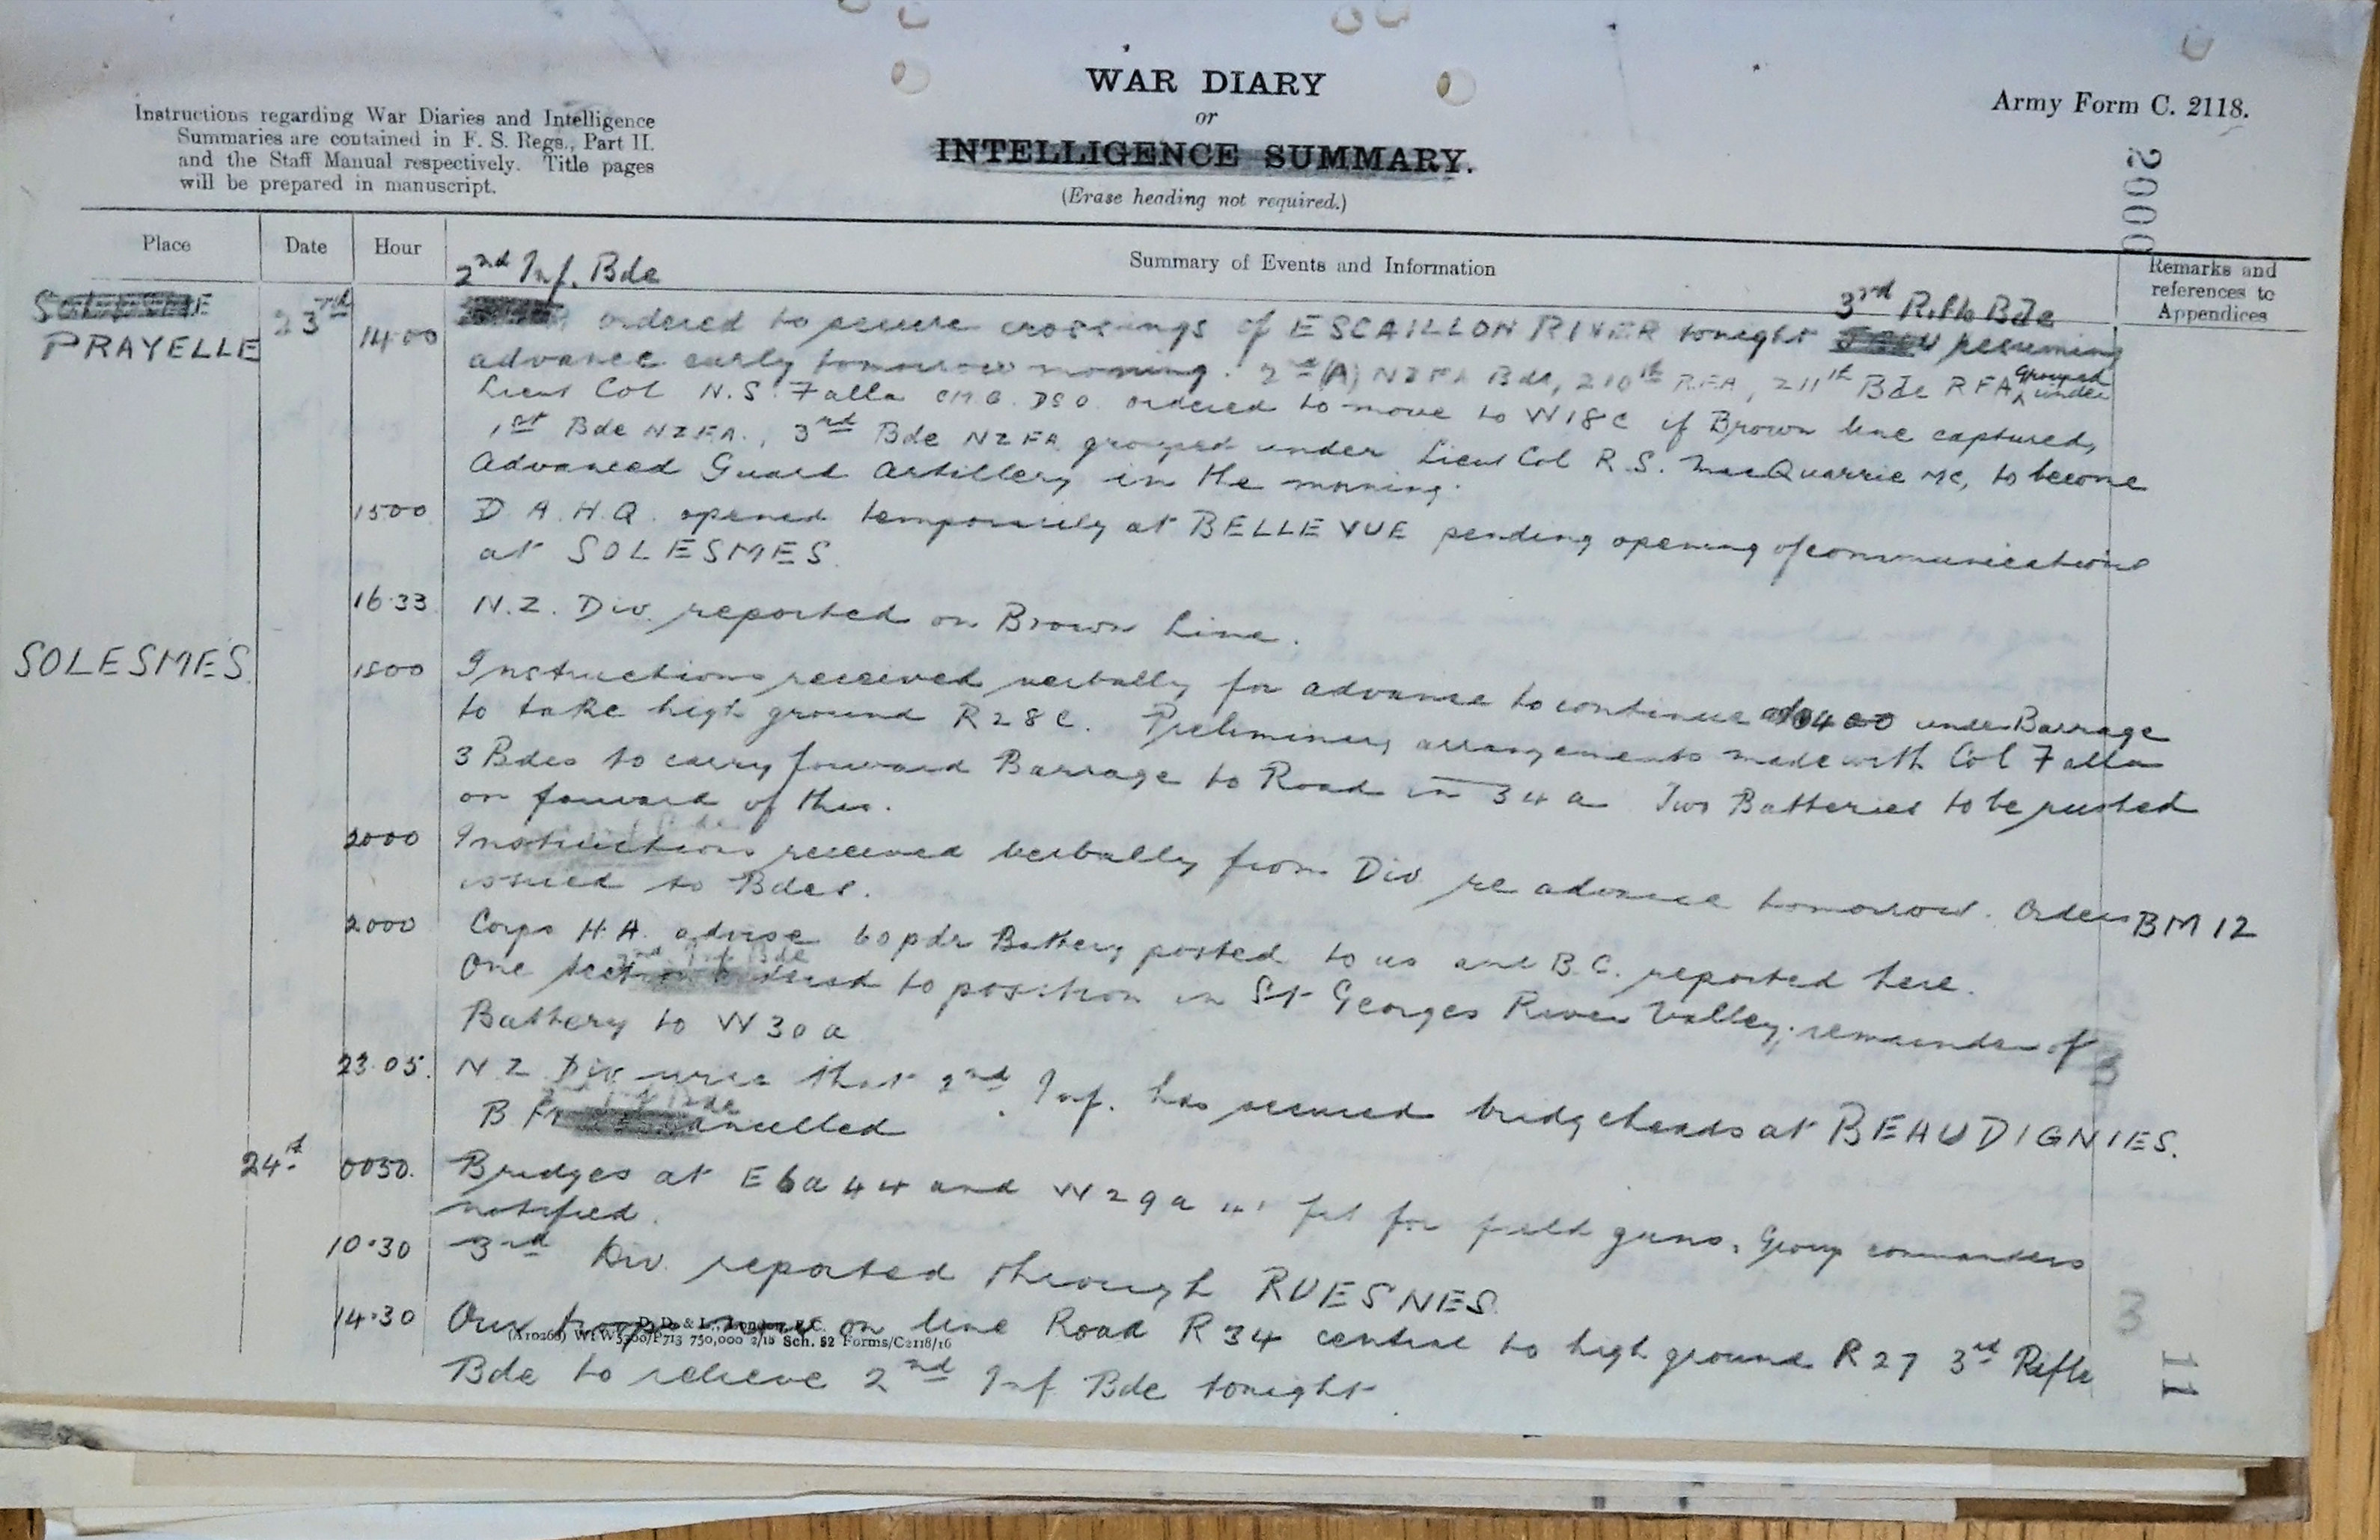 WAR DIARY
or
INTELLIGENCE SUMMARY.
(Erase heading not required.)
Army Form C. 2118.
Instructions regarding War Diaries and Intelligence
Summaries are contained in F. S. Regs., Part II.
and the Staff Manual respectively. Title pages
will be prepared in manuscript.
2000
Place
Date
Hour
Summary of Events and Information
Remarks and
references to
Appendices
2nd Inf. Bde
3rd Rifle Bde
PRAYELLE
23rd
1400
ordered to secure crossings of ESCAILLON RIVER tonight resuming
advance early tomorrow morning. 2nd (A) NZFA Bde, 210th RFA, 211th Bde RFA grouped under
Lieut Col N.S. Falla CMG DSO ordered to move to W18c if Brown line captured,
1st Bde NZFA., 3rd Bde NZFA grouped under Lieut Col R.S. MacQuarrie MC, to become
Advanced Guard Artillery in the morning.
1500
D A.H.Q. opened temporarily at BELLE VUE pending opening of communications
at SOLESMES.
16.33
N.Z. Div. reported on Brown Line.
SOLESMES.
1800
Instructions received verbally for advance to continue 0400 under Barrage
to take high ground R28c. Preliminary arrangements made with Col Falla
3 Bdes to carry forward Barrage to Road in 34a Two Batteries to be pushed
on forward of this.
2000
Instructions received verbally from Div re advance tomorrow. Orders BM 12
issued to Bdes.
2000
Corps H.A. advise 60pdr Battery posted to us and B.C. reported here.
One section to position in St Georges River Valley; remainder of
Battery to W30a
23.05.
N Z Div that 2nd Inf. has secured bridgeheads at BEAUDIGNIES.
cancelled
24th
0050.
Bridges at E6a44 and W29a fit for field guns. Group commanders
notified.
10.30
3rd Div. reported through RUESNES.
14.30
Our troops now on line Road R34 central to high ground R27 3rd Rifle
Bde to relieve 2nd Inf Bde tonight
D. D. & L., London, E.C.
(A10266) Wt W5300/P713 750,000 2/18 Sch. 52 Forms/C2118/16
3
3
11